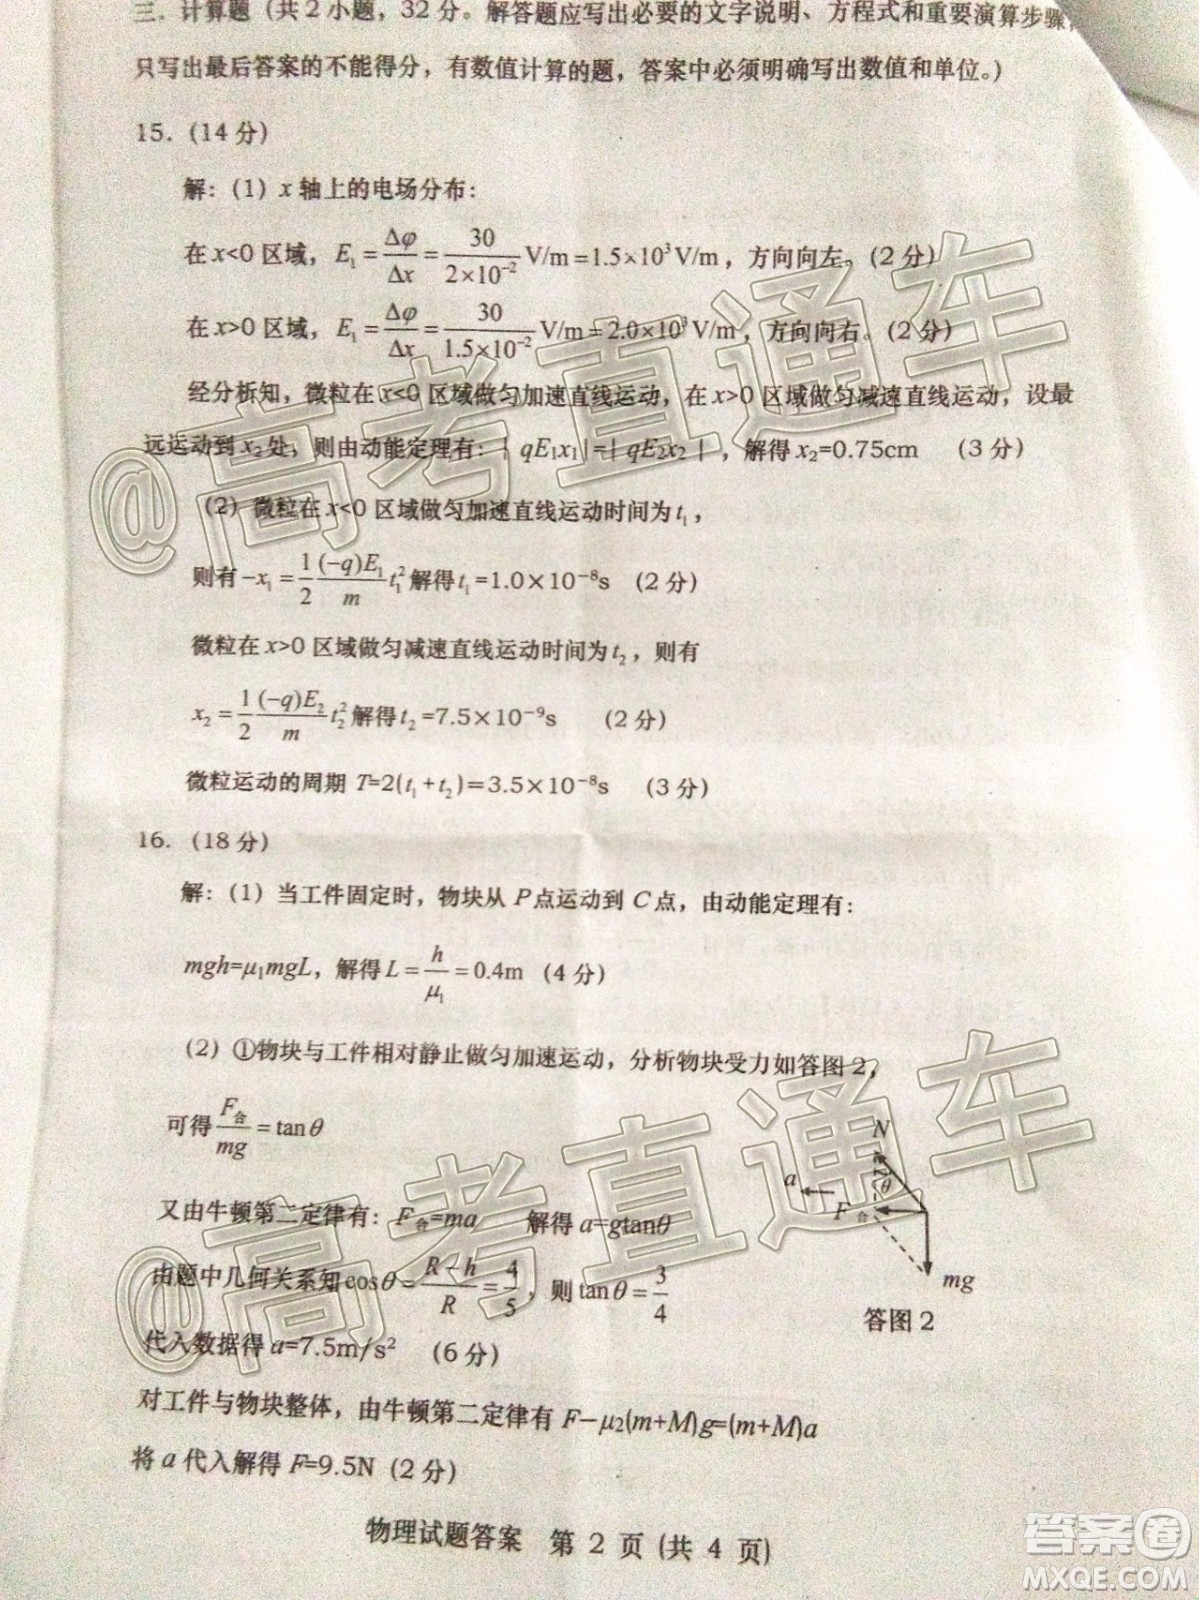 三.计算题（共2小题，32分。解答题应写出必要的文字说明、方程式和重要演算步骤，
只写出最后答案的不能得分，有数值计算的题，答案中必须明确写出数值和单位。）
15.（14分）
解：（1）x轴上的电场分布：
在x<0区域，E₁=Δφ/Δx=30/(2×10⁻²)V/m=1.5×10³V/m，方向向左。（2分）
在x>0区域，E₁=Δφ/Δx=30/(1.5×10⁻²)V/m=2.0×10³V/m，方向向右。（2分）
经分析知，微粒在x<0区域做匀加速直线运动，在x>0区域做匀减速直线运动，设最
远运动到x₂处，则由动能定理有：|qE₁x₁|=|qE₂x₂|，解得x₂=0.75cm （3分）
（2）微粒在x<0区域做匀加速直线运动时间为t₁，
则有-x₁=1/2 (-q)E₁/m t₁² 解得t₁=1.0×10⁻⁸s （2分）
微粒在x>0区域做匀减速直线运动时间为t₂，则有
x₂=1/2 (-q)E₂/m t₂² 解得t₂=7.5×10⁻⁹s （2分）
微粒运动的周期 T=2(t₁+t₂)=3.5×10⁻⁸s （3分）
16.（18分）
解：（1）当工件固定时，物块从P点运动到C点，由动能定理有：
mgh=μ₁mgL，解得L=h/μ₁=0.4m （4分）
（2）①物块与工件相对静止做匀加速运动，分析物块受力如答图2，
可得F合/mg=tanθ
又由牛顿第二定律有：F合=ma 解得a=gtanθ
由题中几何关系知cosθ=(R-h)/R=4/5，则tanθ=3/4
代入数据得a=7.5m/s² （6分）
N
θ
a
F合
mg
答图2
对工件与物块整体，由牛顿第二定律有F-μ₂(m+M)g=(m+M)a
将a代入解得F=9.5N（2分）
物理试题答案 第2页(共4页)
@高考直通车
@高考直通车
答案圈
MXQE.COM